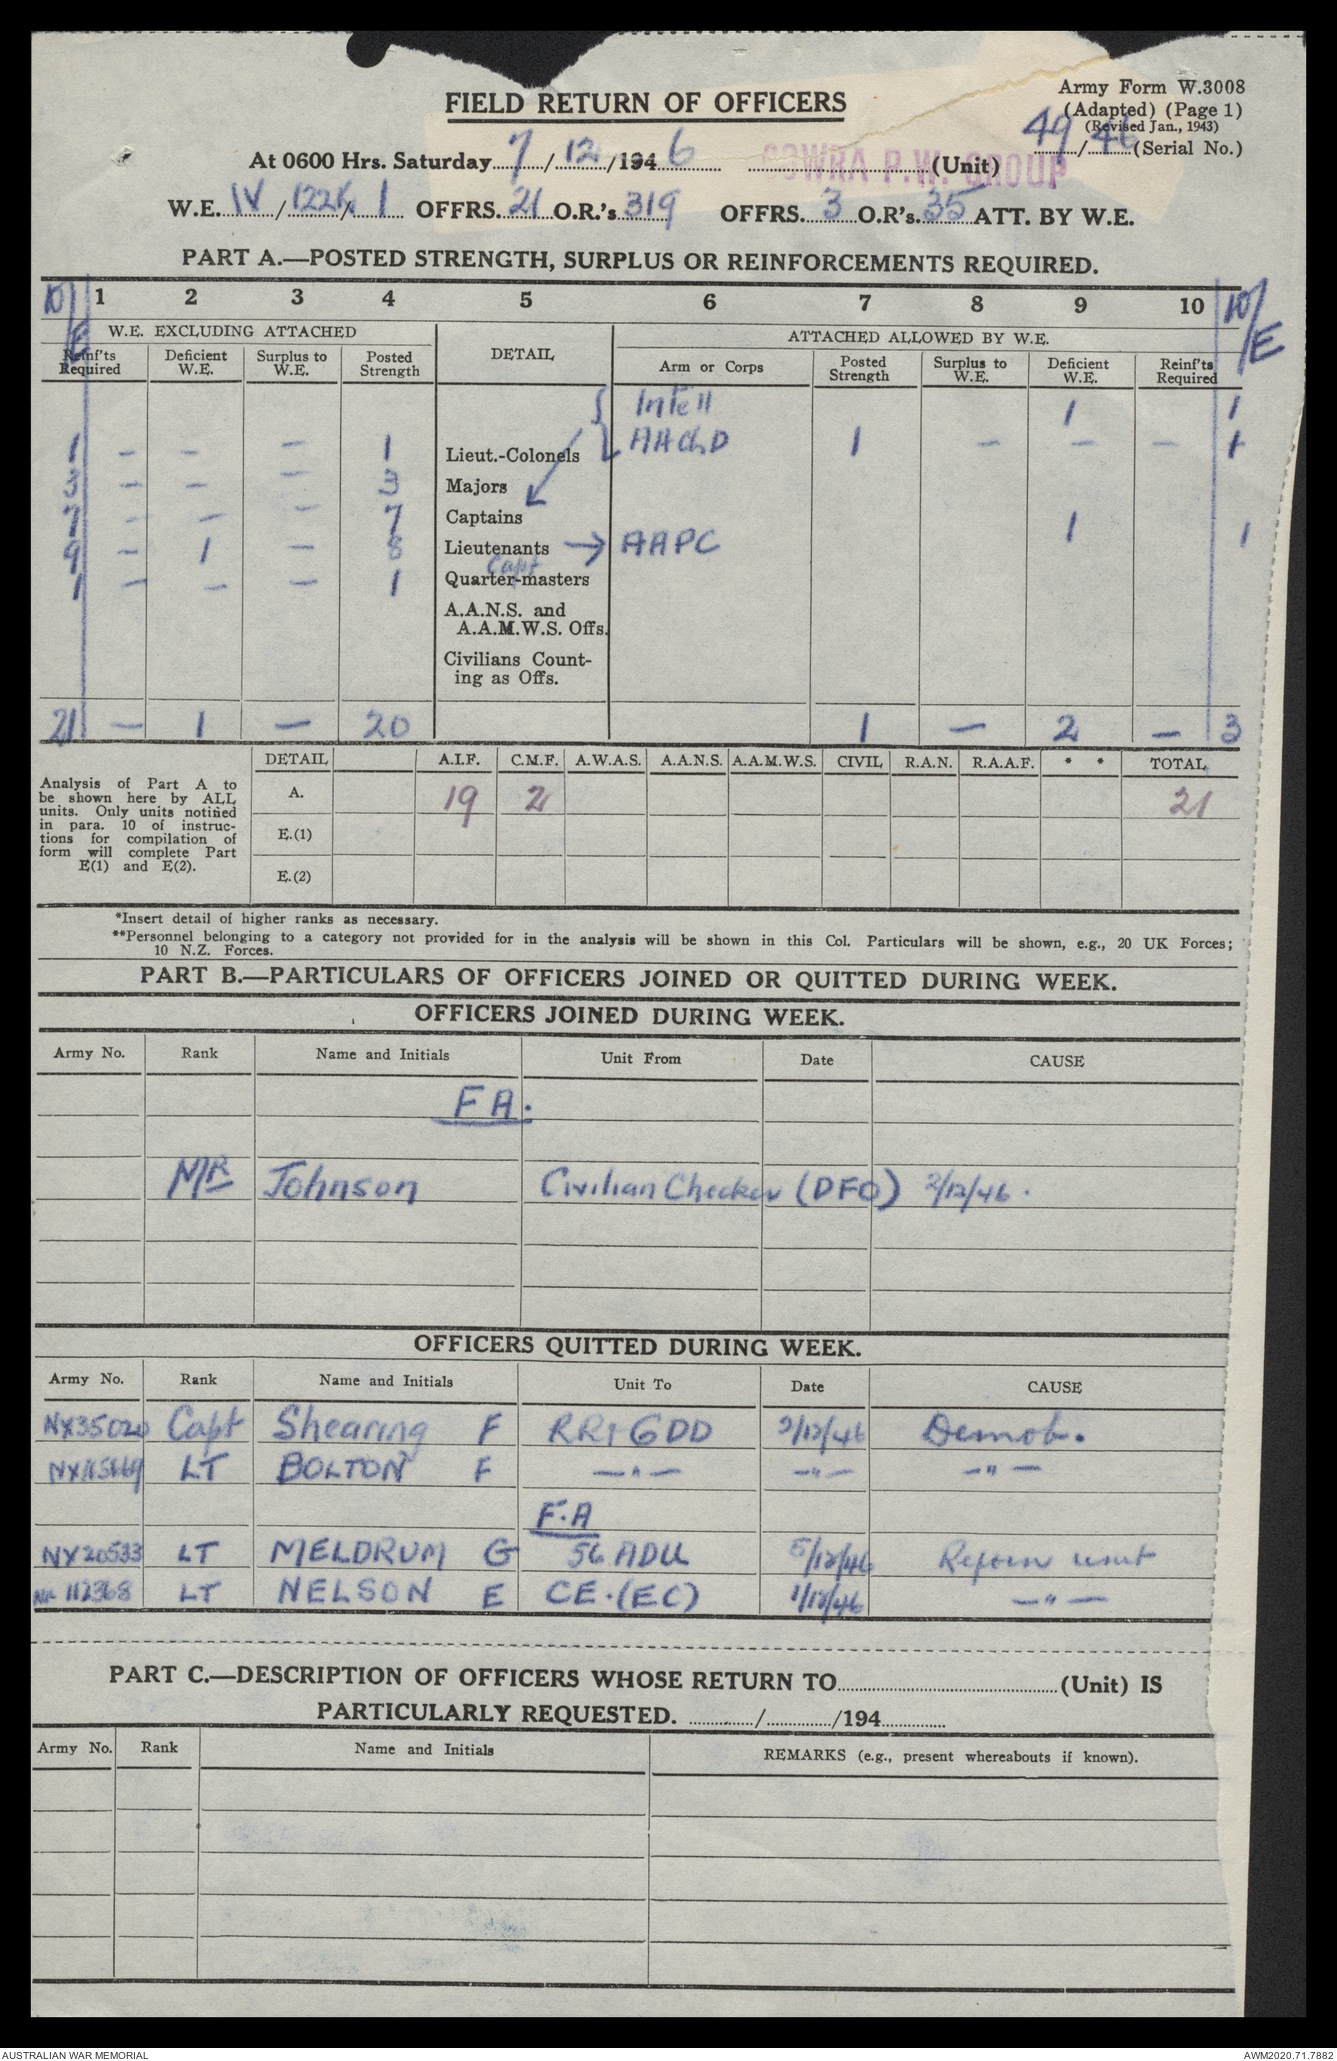 FIELD RETURN OF OFFICERS
Army Form W.3008
(Adapted) (Page 1)
(Revised Jan., 1943)
49/46 (Serial No.)
At 0600 Hrs. Saturday 7/12/1946 COWRA P.W. GROUP (Unit)
W.E. IV / 122K / 1 OFFRS. 21 O.R.'s 319 OFFRS. 3 O.R's. 35 ATT. BY W.E.
PART A.—POSTED STRENGTH, SURPLUS OR REINFORCEMENTS REQUIRED.
1 2 3 4 5 6 7 8 9 10
W.E. EXCLUDING ATTACHED DETAIL ATTACHED ALLOWED BY W.E.
Reinf'ts Required Deficient W.E. Surplus to W.E. Posted Strength Arm or Corps Posted Strength Surplus to W.E. Deficient W.E. Reinf'ts Required
W/E W/E
Intell 1 1
1 – – – 1 Lieut.-Colonels AAChD 1 – – – 1
3 – – – 3 Majors
7 – – – 7 Captains
9 – 1 – 8 Lieutenants → AAPC 1 1
Capt
1 – – – 1 Quarter-masters
A.A.N.S. and
A.A.M.W.S. Offs.
Civilians Count-
ing as Offs.
21 – 1 – 20 1 – 2 – 3
DETAIL A.I.F. C.M.F. A.W.A.S. A.A.N.S. A.A.M.W.S. CIVIL R.A.N. R.A.A.F. * * TOTAL
Analysis of Part A to
be shown here by ALL
units. Only units notified
in para. 10 of instruc-
tions for compilation of
form will complete Part
E(1) and E(2).
A. 19 2 21
E.(1)
E.(2)
*Insert detail of higher ranks as necessary.
**Personnel belonging to a category not provided for in the analysis will be shown in this Col. Particulars will be shown, e.g., 20 UK Forces;
10 N.Z. Forces.
PART B.—PARTICULARS OF OFFICERS JOINED OR QUITTED DURING WEEK.
OFFICERS JOINED DURING WEEK.
Army No. Rank Name and Initials Unit From Date CAUSE
FA.
MR Johnson Civilian Checker (DFO) 2/12/46.
OFFICERS QUITTED DURING WEEK.
Army No. Rank Name and Initials Unit To Date CAUSE
NX35020 Capt Shearing F RR+GDD 2/12/46 Demob.
LT BOLTON F —"— —"— —"—
F.A
NX20533 LT MELDRUM G 56 ADU 5/12/46 Rejoin unit
112368 LT NELSON E CE.(EC) 1/12/46 —"—
PART C.—DESCRIPTION OF OFFICERS WHOSE RETURN TO (Unit) IS
PARTICULARLY REQUESTED. / /194
Army No. Rank Name and Initials REMARKS (e.g., present whereabouts if known).
AUSTRALIAN WAR MEMORIAL AWM2020.71.7882